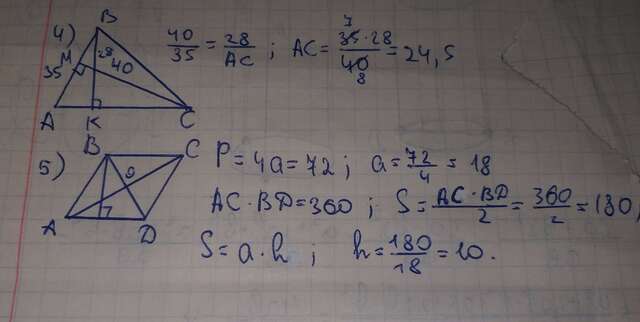 4) B M 28 35 40 A K C 40/35 = 28/AC ; AC = 35·28/40 = 24,5
7
8
5) B C O A D P = 4a = 72 ; a = 72/4 = 18
AC·BD = 360 ; S = AC·BD/2 = 360/2 = 180,
S = a·h ; h = 180/18 = 10.